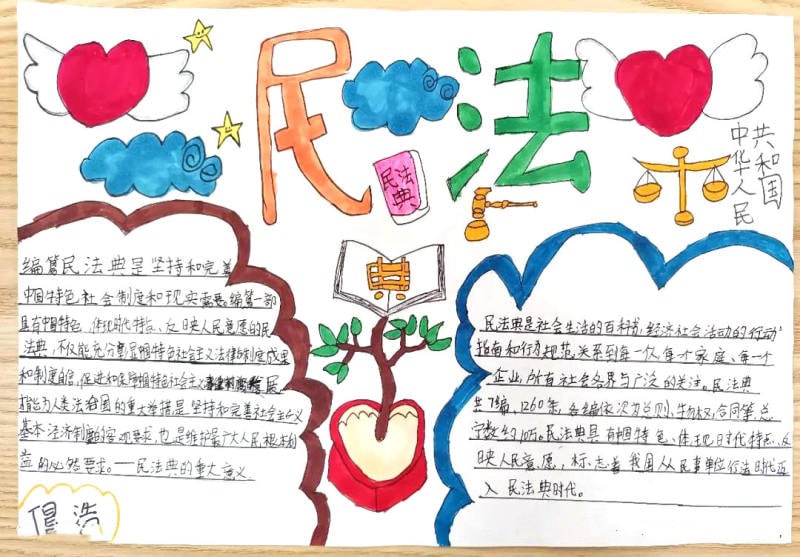 民法
民法
典
中华人民
共和国
编纂民法典是坚持和完善
中国特色社会制度和现实需要。编纂一部
具有中国特色、体现时代特点、反映人民意愿的民
法典,不仅能充分显中国特色社会主义法律制度成果
和制度自信,促进和保障中国特色社会主义
为人类法治的重大举措是坚持和完善社会主义
基本经济制度的客观要求,也是维护最广大人民根本利
益的必然要求。——民法典的重大意义
民法典是社会生活的百科书,经济社会活动的行动
指南和行为规范,关系到每一个人、每个家庭、每一个
企业,所有社会各界与广泛的关注。民法典
共7编,1260条,各编依次为总则、物权、合同等,总
字数约10万。民法典具有中国特色、体现时代特点、反
映人民意愿,标志着我国从民事单位行法时代迈
入民法典时代。